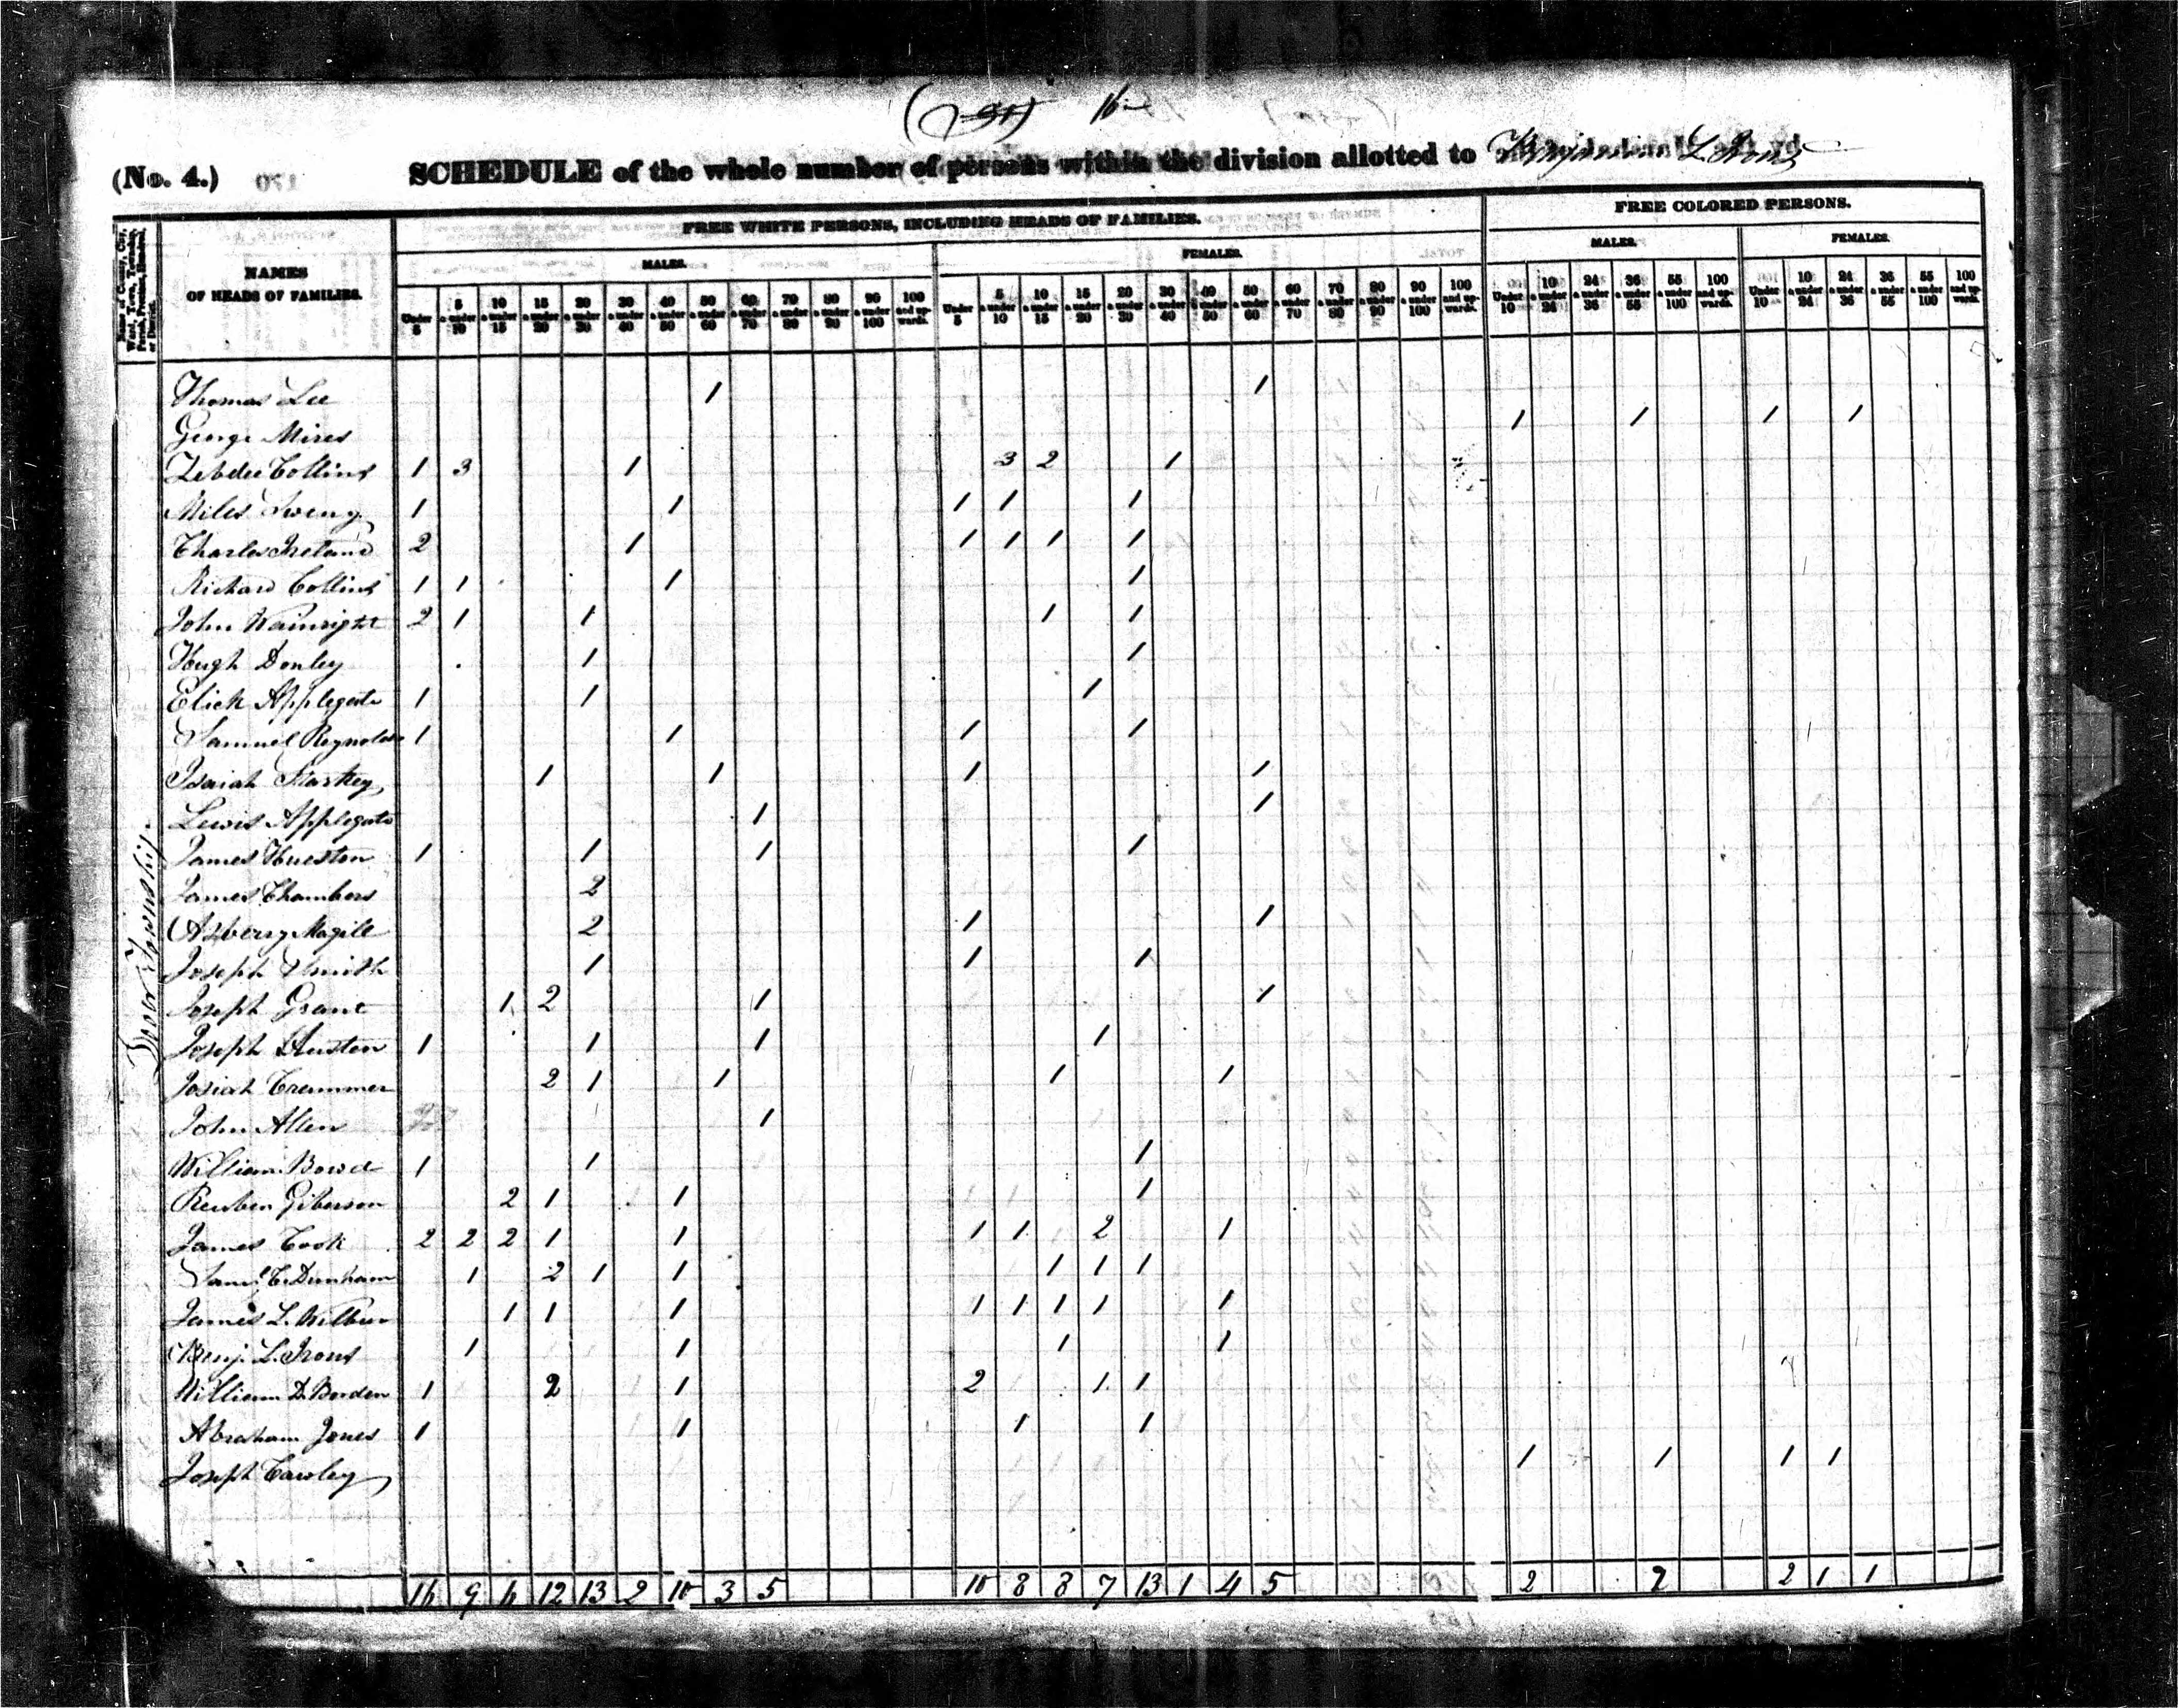 16
(No. 4.) SCHEDULE of the whole number of persons within the division allotted to Benjamin L. Irons
Name of County, City, Ward, Town, Township, Parish, Precinct, Hundred, or District.
NAMES
OF HEADS OF FAMILIES.
FREE WHITE PERSONS, INCLUDING HEADS OF FAMILIES.
FREE COLORED PERSONS.
MALES. FEMALES. MALES. FEMALES.
Under 5 | 5 & under 10 | 10 & under 15 | 15 & under 20 | 20 & under 30 | 30 & under 40 | 40 & under 50 | 50 & under 60 | 60 & under 70 | 70 & under 80 | 80 & under 90 | 90 & under 100 | 100 and upwards. | Under 5 | 5 & under 10 | 10 & under 15 | 15 & under 20 | 20 & under 30 | 30 & under 40 | 40 & under 50 | 50 & under 60 | 60 & under 70 | 70 & under 80 | 80 & under 90 | 90 & under 100 | 100 and upwards. | Under 10 | 10 & under 24 | 24 & under 36 | 36 & under 55 | 55 & under 100 | 100 and upwards. | Under 10 | 10 & under 24 | 24 & under 36 | 36 & under 55 | 55 & under 100 | 100 and upwards.
Dover Township
Thomas Lee 1 1
George Mires 1 1 1 1
Zebdee Collins 1 3 1 3 2 1
Miles Sweny 1 1 1 1 1
Charles Ireland 2 1 1 1 1 1
Richard Collins 1 1 1 1
John Wainright 2 1 1 1 1
Hugh Donley 1 1
Elick Applegate 1 1 1
Samuel Reynolds 1 1 1 1
Isaiah Starkey 1 1 1 1
Lewis Applegate 1 1
James Hueston 1 1 1 1
James Chambers 2
Asberry Magill 2 1 1
Joseph Smith 1 1 1
Joseph Grant 1 2 1 1
Joseph Husten 1 1 1 1
Josiah Cremmer 2 1 1 1 1
John Allen 1
William Bowd 1 1 1
Reuben Giberson 2 1 1 1
James Cook 2 2 2 1 1 1 1 2 1
Saml. C. Dunham 1 2 1 1 1 1 1
James L. Wilbur 1 1 1 1 1 1 1 1
Benj. L. Irons 1 1 1 1
William D. Borden 1 2 1 2 1 1
Abraham Jones 1 1 1 1
Joseph Cawley 1 1 1 1
16 9 6 12 13 2 10 3 5 10 8 8 7 13 1 4 5 2 2 2 1 1